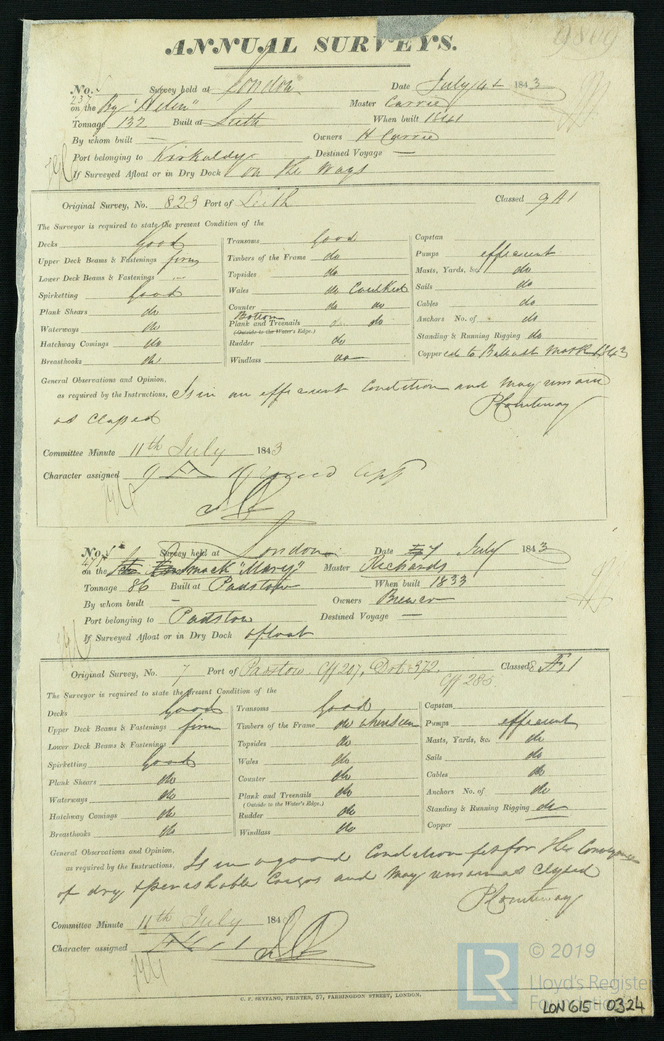 9809
ANNUAL SURVEYS.
No. 237 Survey held at London Date July 14th 1843
on the Bg "Helen" Master Currie
Tonnage 132 Built at Leith When built 1841
By whom built — Owners H Currie
Port belonging to Kirkaldy Destined Voyage —
If Surveyed Afloat or in Dry Dock on the Ways
Original Survey, No. 823 Port of Leith Classed 9 A 1
The Surveyor is required to state the present Condition of the
Decks Good
Upper Deck Beams & Fastenings firm
Lower Deck Beams & Fastenings —
Spirketting Good
Plank Shears do
Waterways do
Hatchway Comings do
Breasthooks do
Transoms Good
Timbers of the Frame do
Topsides do
Wales do Caulked
Counter do do
Bottom
Plank and Treenails do do
(Outside to the Water's Edge.)
Rudder do
Windlass do
Capstan
Pumps efficient
Masts, Yards, &c. do
Sails do
Cables do
Anchors No. of do
Standing & Running Rigging do
Coppered to Ballast Mark 1843
General Observations and Opinion,
as required by the Instructions, Is in an efficient Condition and may remain
as Classed
P Courtenay
Committee Minute 11th July 1843
Character assigned 9 A
No. Survey held at London Date 7 July 1843
on the Smack "Mary" Master Richards
Tonnage 86 Built at Padstow When built 1833
By whom built Owners Brewer
Port belonging to Padstow Destined Voyage —
If Surveyed Afloat or in Dry Dock afloat
Original Survey, No. 7 Port of Padstow Cff 207, Dob 372 Classed Æ 1
Cff 285
The Surveyor is required to state the present Condition of the
Decks Good
Upper Deck Beams & Fastenings firm
Lower Deck Beams & Fastenings
Spirketting Good
Plank Shears do
Waterways do
Hatchway Comings do
Breasthooks do
Transoms Good
Timbers of the Frame do when seen
Topsides do
Wales do
Counter do
Plank and Treenails do
(Outside to the Water's Edge.)
Rudder do
Windlass do
Capstan
Pumps efficient
Masts, Yards, &c. do
Sails do
Cables do
Anchors No. of do
Standing & Running Rigging do
Copper
General Observations and Opinion,
as required by the Instructions, Is in a good Condition fit for the Conveyance
of dry & perishable Cargos and may remain as Classed
P Courtenay
Committee Minute 11th July 184
Character assigned Æ 1
C. F. SEYFANG, PRINTER, 57, FARRINGDON STREET, LONDON.
LR © 2019
Lloyd's Register
Foundation
LON 615-0324